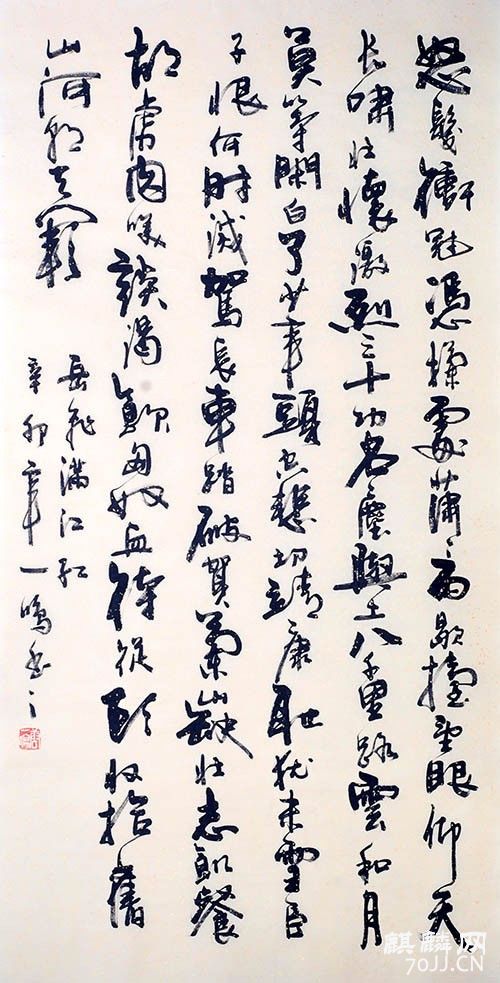 怒髮衝冠憑欄處瀟〻雨歇擡望眼仰天
長嘯壯懷激烈三十功名塵與土八千里路雲和月
莫等閑白了少年頭空悲切靖康耻猶未雪臣
子恨何時滅駕長車踏破賀蘭山缺壯志飢餐
胡虜肉笑談渴飲匈奴血待從頭收拾舊
山河朝天闕
岳飛滿江紅
辛卯年一鳴書
麒麟网
70JJ.CN